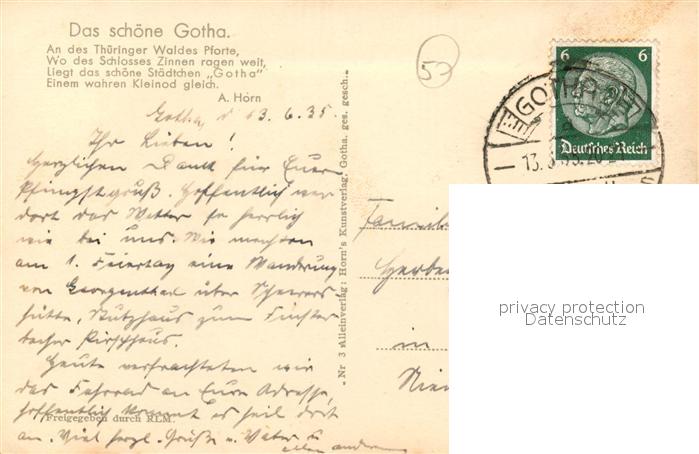 Das schöne Gotha.
An des Thüringer Waldes Pforte,
Wo des Schlosses Zinnen ragen weit,
Liegt das schöne Städtchen „Gotha"
Einem wahren Kleinod gleich.
A. Horn
53
6 6
Deutsches Reich
GOTHA
Gotha, d 13.6.35.
Ihr Lieben!
Herzlichen Dank für Euren
Pfingstgruß. Hoffentlich war
dort das Wetter so herrlich
wie bei uns. Wir machten
am 1. Feiertag eine Wanderung
von Georgenthal über
hütte, zum Finster
berger
Heute verfrachteten wir
das Fahrrad an Eure Adresse,
hoffentlich kommt es heil dort
an. Viel herzl. Grüße v. Vater u
allen anderen
Freigegeben durch RLM.
Nr 3 Alleinverlag: Horn's Kunstverlag, Gotha, ges. gesch.
Famili
in
Nie
privacy protection
Datenschutz